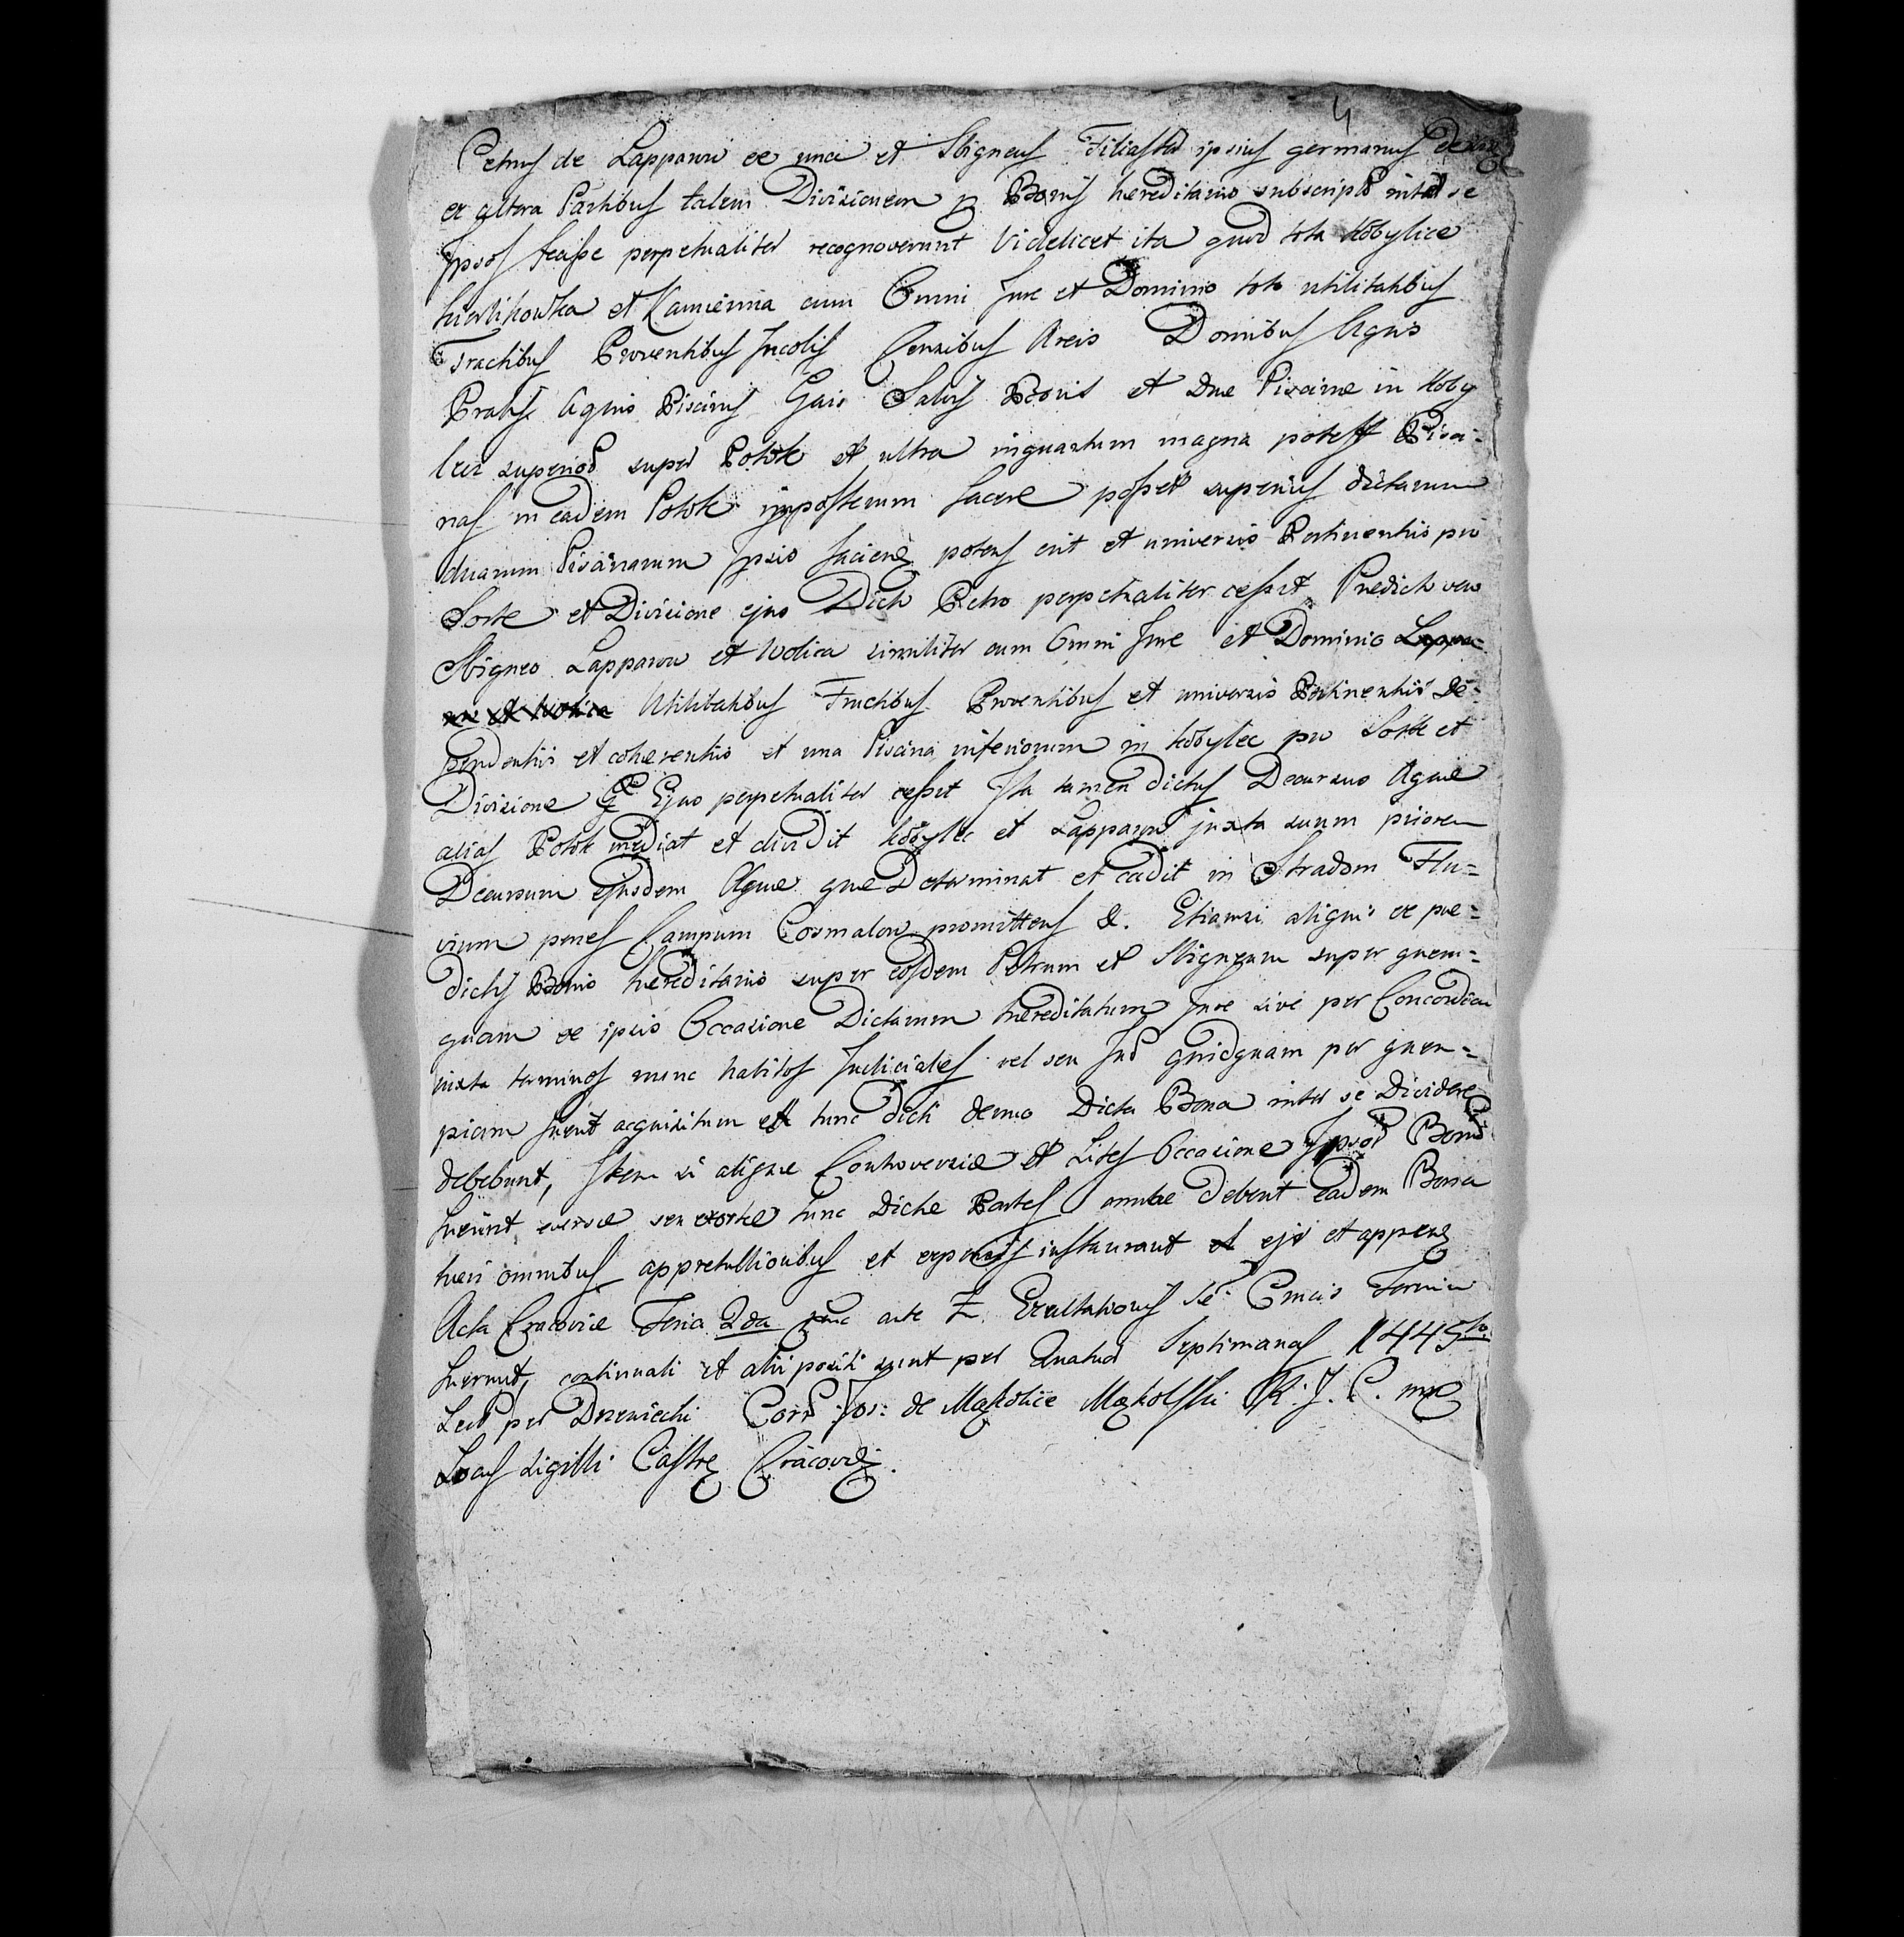 4
Petrus de Lappanow ex una et Sbigneus Filiaster ipsius germanus
ex altera Partibus talem Divisionem p Bonis hereditariis subscriptis inter se
Ipsos fecisse perpetualiter recognoverunt Videlicet ita quod tota Kobylice
et Kamienna cum Omni Jure et Dominio toto utilitatibus
Fructibus Proventibus Incolis Censibus Areis Domibus Agris
Pratis Aquis Piscinis Gais Salvis Boris et Due Piscine in Koby
lecz superiores super Potok et ultra inquantum magna potest Pisci-
nas in eadem Potok imposterum facere posset superius dictarum
duarum Piscinarum Ipsis faciens potens erit et universis Pertinentiis pro
Sorte et Divisione ejus Dicto Petro perpetualiter cessit Predicto vero
Sbigneo Lappanow et Wolica similiter cum Omni Jure et Dominio
Utilitatibus Fructibus Proventibus et universis Pertinentiis De-
pendentiis et coherentiis et una Piscina inferiorum in Kobylec pro Sorte et
Divisione Ejus perpetualiter cessit Ita tamen dictus Decursus Aque
alias Potok mediat et dividit Kobylec et Lappanow juxta suum priorem
Decursum ejusdem Aque que Determinat et cadit in Stradom Flu-
vium penes Campum Cosmalow promittens &. Etiamsi aliquis ex pre-
dictis Bonis hereditariis super eosdem Petrum et Sbigneum super quem-
quam ex ipsis Occasione Dictarum hereditatum Jure sive per Concordiam
juxta terminos nunc habitos Judiciales vel seu quidquam per quem-
piam fuerit acquisitum et tunc dicti denuo Dicta Bona inter se Dividere
debebunt, Item si alique Controversie et Lites Occasione Ipsor Bonor
fuerint everse seu exorte tunc Dicte Partes ambe debent eadem Bona
tueri omnibus et expensis et
Acta Cracovie Feria 2da ante F. Exaltationis Se Crucis Termini
fuerunt, continuati et positi sunt per Quatuor Septimanas 1445to
Lect per Drzewiecki Corr Jos: de Mąkolice Mąkolski R. J. C. mp
Locus Sigilli Castre Cracovie.